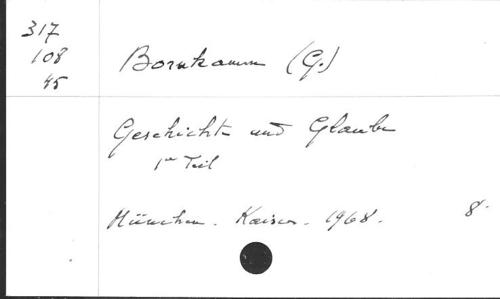 317
108
45
Bornkamm (G.)
Geschichte und Glaube
1er Teil
München. Kaiser. 1968. 8.